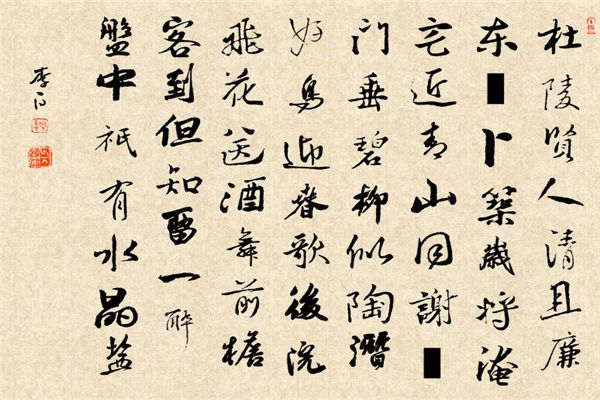 杜陵贤人清且廉
东卜築歲将淹
宅近青山同謝
门垂碧柳似陶潛
好鳥迎春歌後院
飛花送酒舞前檐
客到但知留一醉
盤中祇有水晶盐
李白